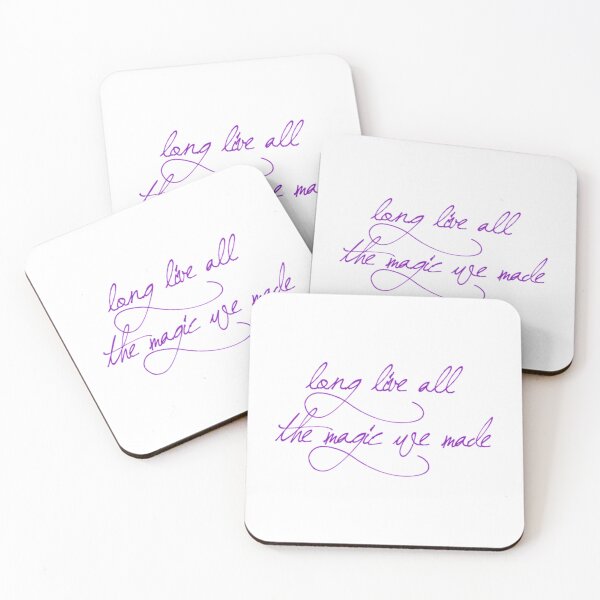 long live all
the ma
long live all
the magic we made
long live all
the magic we made
long live all
the magic we made